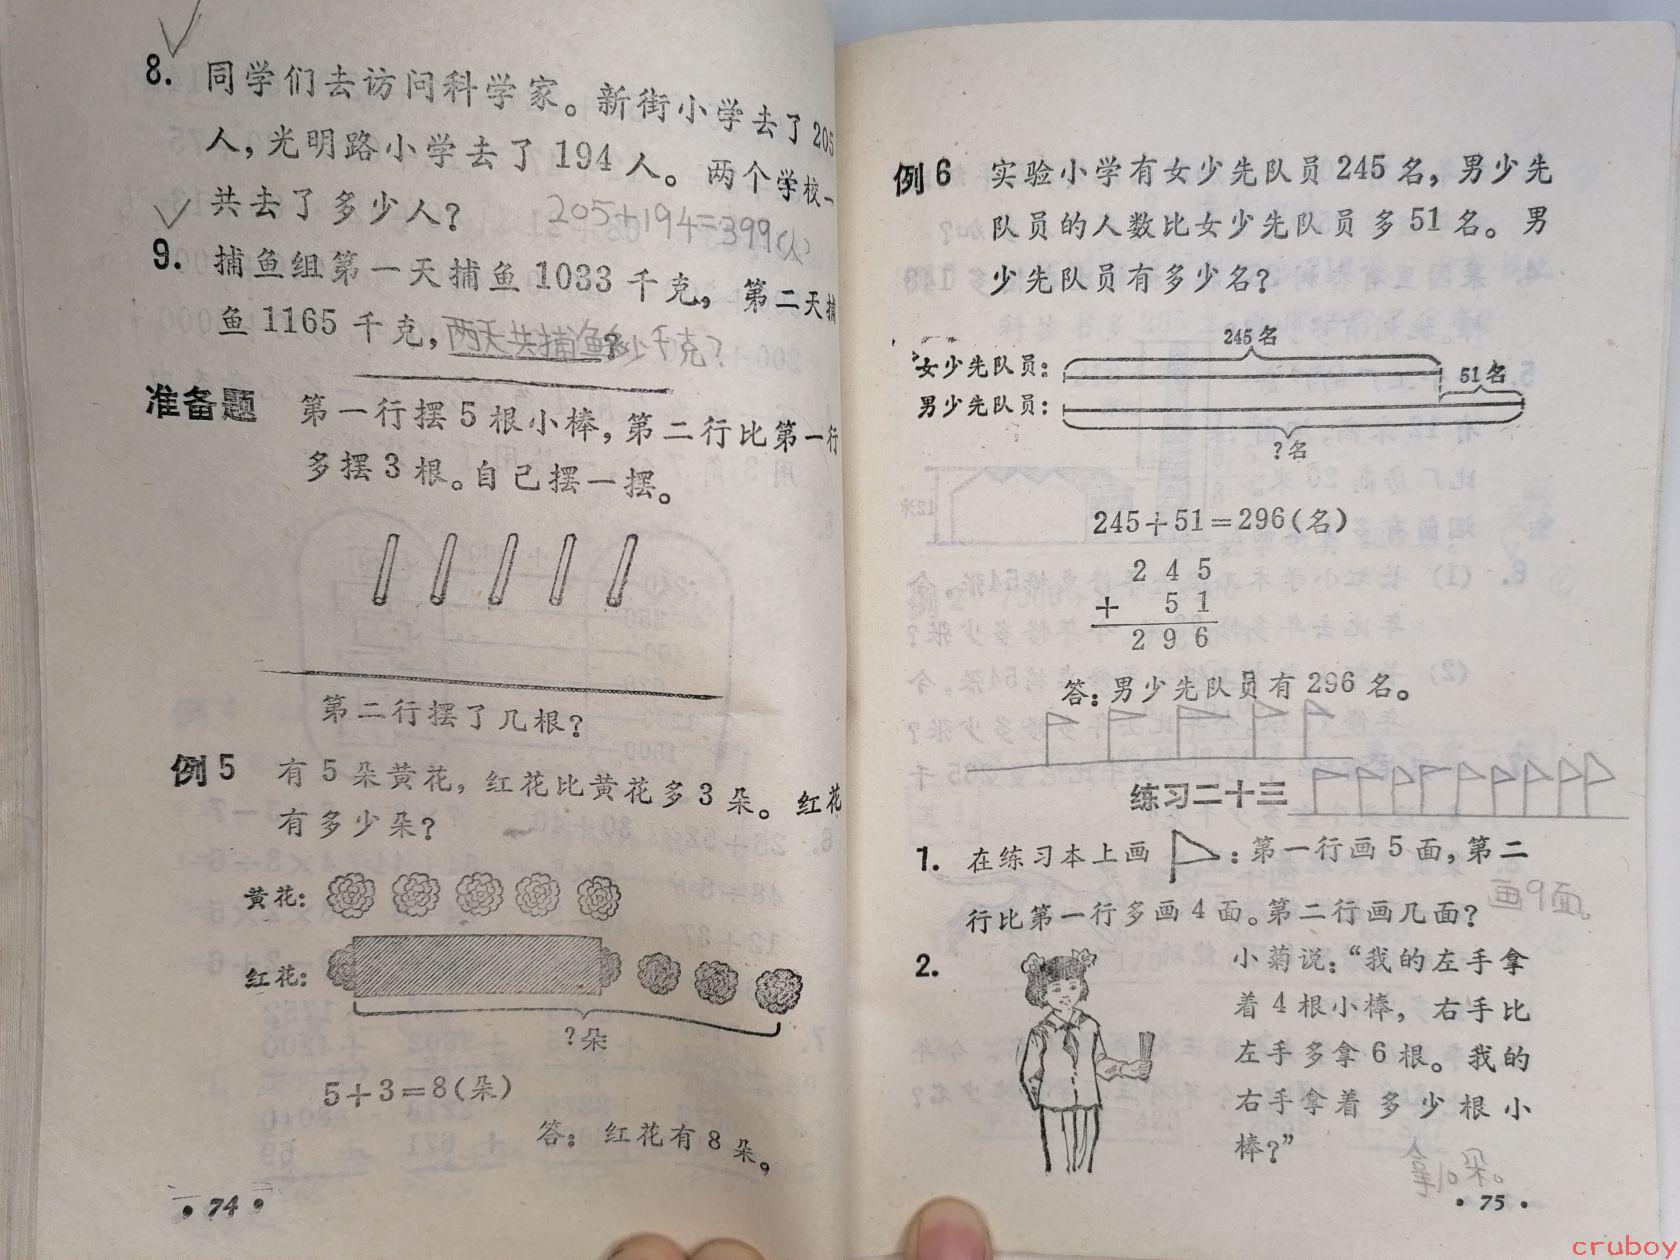 8. 同学们去访问科学家。新街小学去了205
人,光明路小学去了194人。两个学校一
共去了多少人? 205+194=399(人)
9. 捕鱼组第一天捕鱼1033千克,第二天捕
鱼1165千克,两天共捕鱼多少千克?
准备题 第一行摆5根小棒,第二行比第一行
多摆3根。自己摆一摆。
第二行摆了几根?
例5 有5朵黄花,红花比黄花多3朵。红花
有多少朵?
黄花:
红花:
?朵
5+3=8(朵)
答:红花有8朵。
·74·
例6 实验小学有女少先队员245名,男少先
队员的人数比女少先队员多51名。男
少先队员有多少名?
245名
女少先队员:
51名
男少先队员:
?名
245+51=296(名)
2 4 5
+ 5 1
2 9 6
答:男少先队员有296名。
练习二十三
1. 在练习本上画 :第一行画5面,第二
行比第一行多画4面。第二行画几面? 画9面。
2. 小菊说:“我的左手拿
着4根小棒,右手比
左手多拿6根。我的
右手拿着多少根小
棒?”
拿10朵。
·75·
cruboy